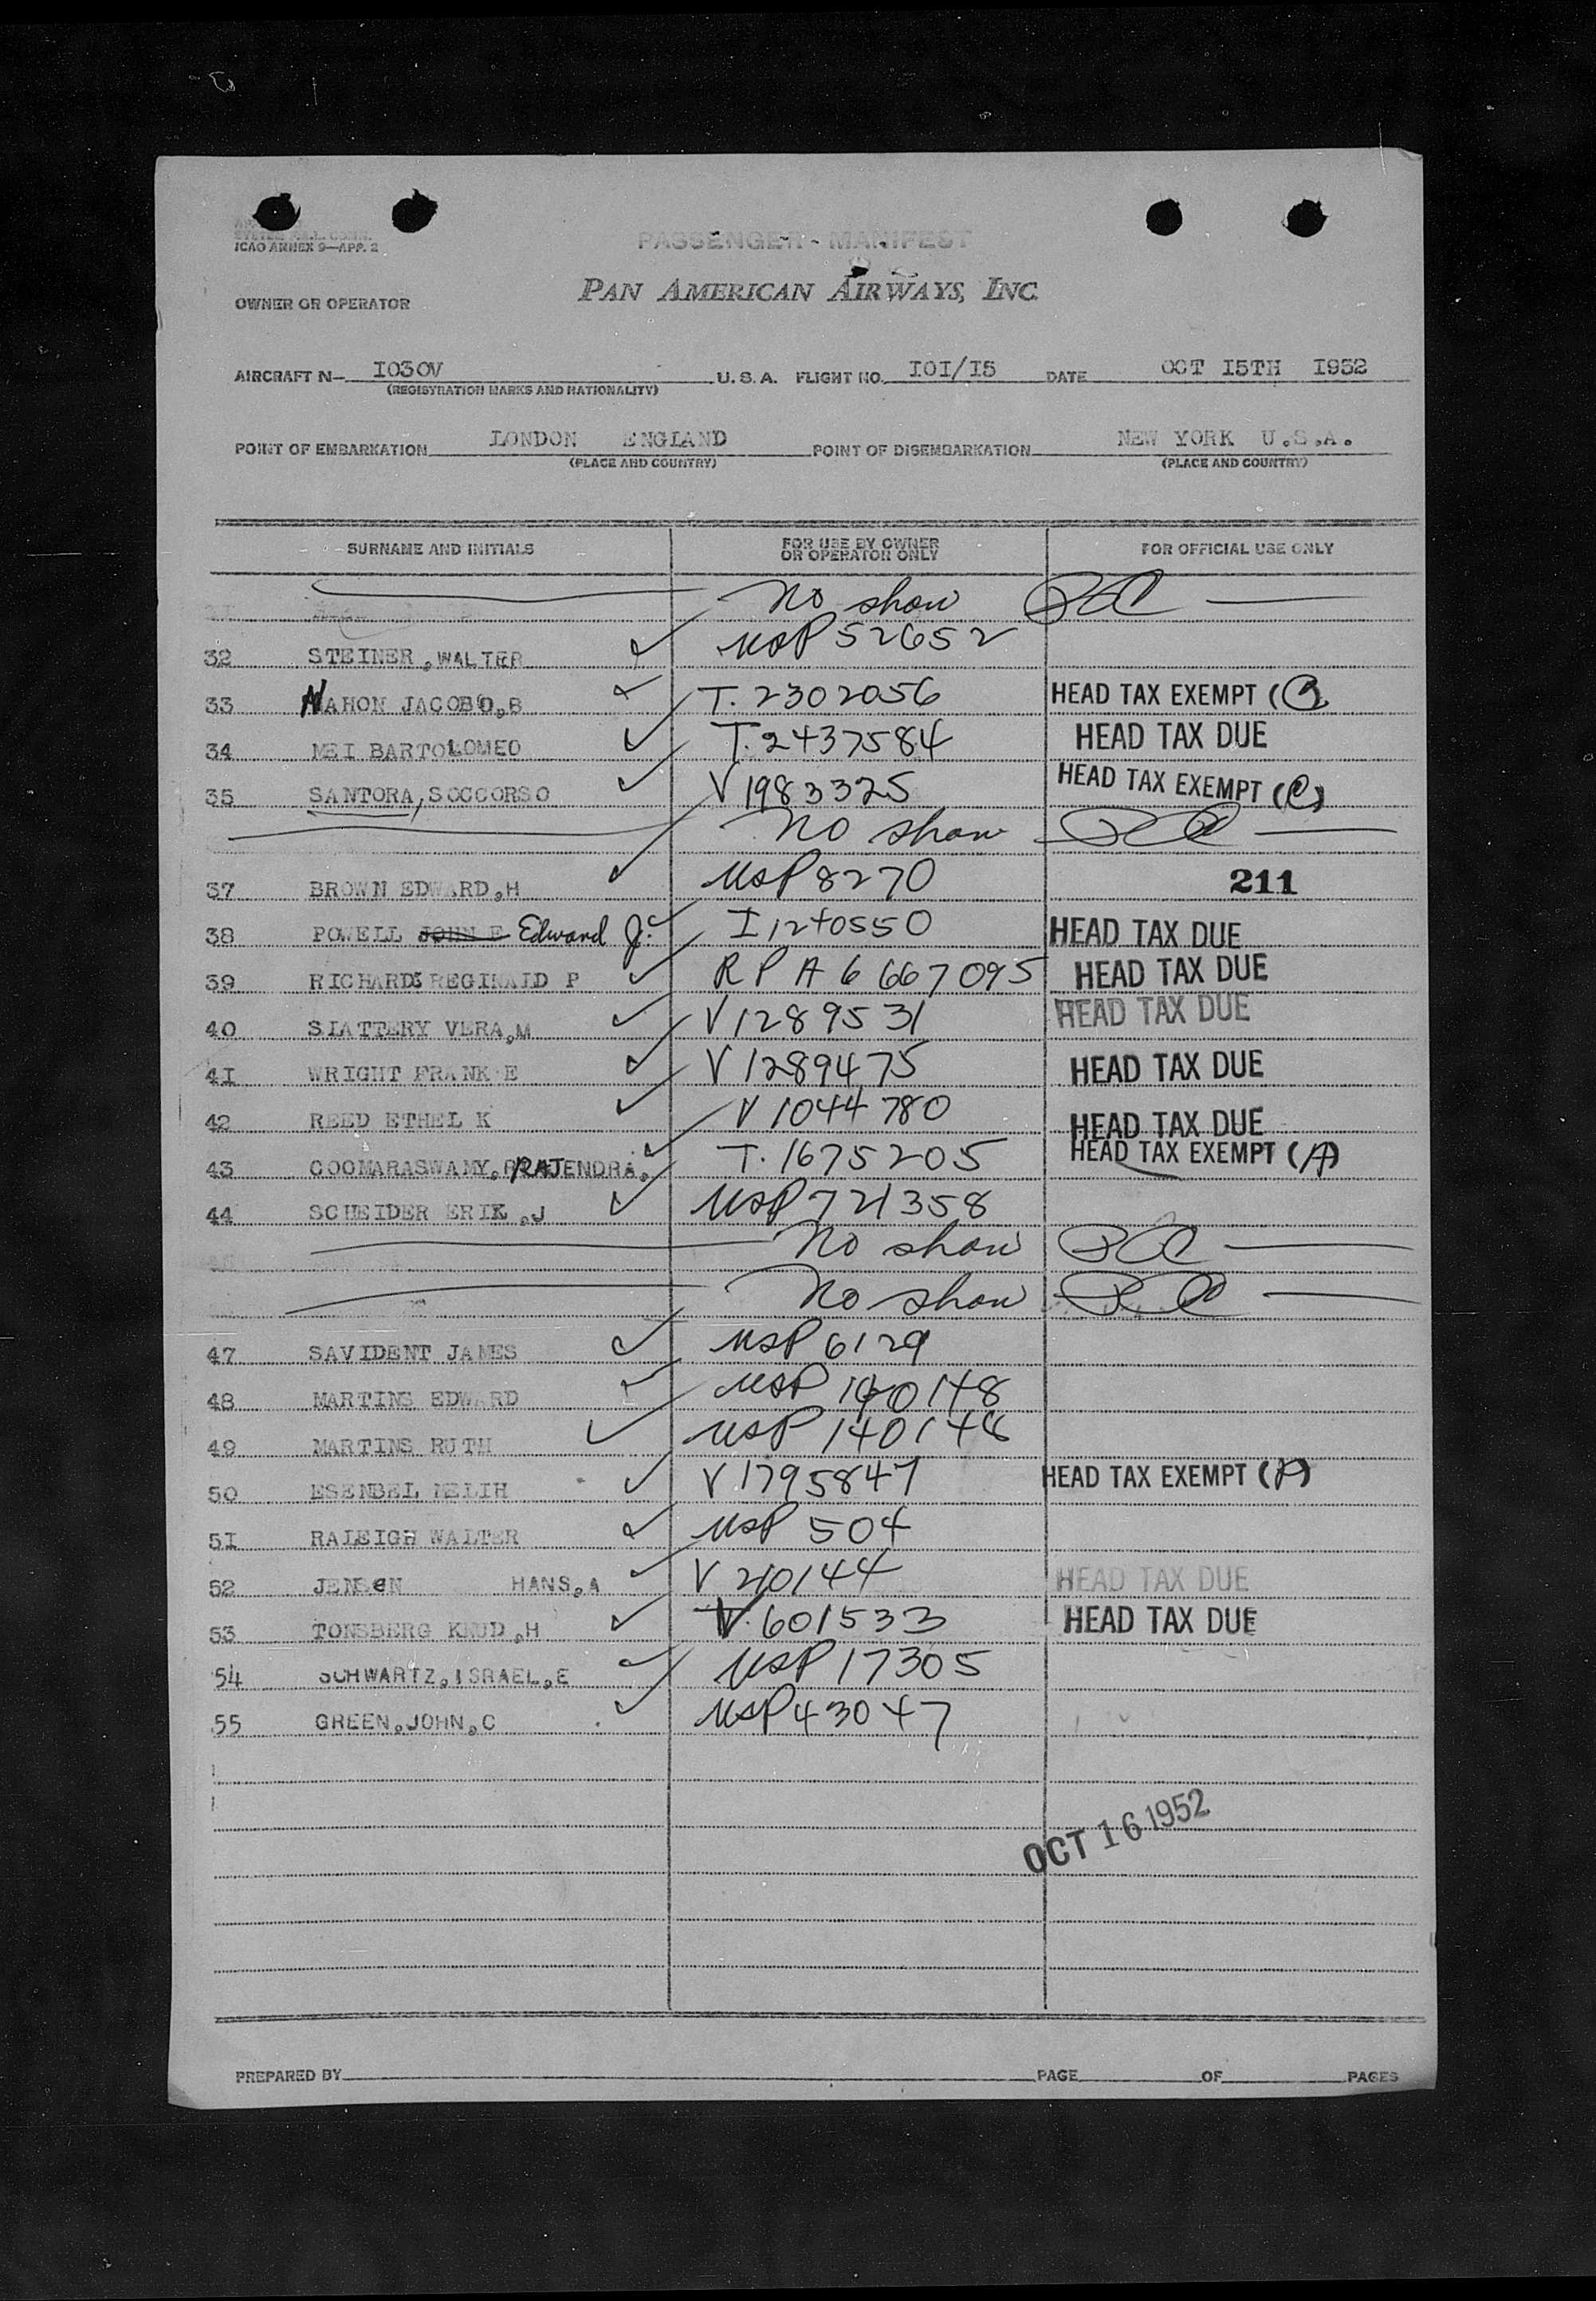 ICAO ANNEX 9—APP. 2
PASSENGER MANIFEST
PAN AMERICAN AIRWAYS, INC.
OWNER OR OPERATOR
AIRCRAFT N— I030V U.S.A. FLIGHT NO. I0I/I5 DATE OCT I5TH I952
(REGISTRATION MARKS AND NATIONALITY)
POINT OF EMBARKATION LONDON ENGLAND POINT OF DISEMBARKATION NEW YORK U.S.A.
(PLACE AND COUNTRY) (PLACE AND COUNTRY)
SURNAME AND INITIALS FOR USE BY OWNER OR OPERATOR ONLY FOR OFFICIAL USE ONLY
No show
32 STEINER,WALTER USP 52652
33 NAHON JACOBO,B T. 2302056 HEAD TAX EXEMPT (C)
34 MEI BARTOLOMEO T. 2437584 HEAD TAX DUE
35 SANTORA, SOCCORSO V 1983325 HEAD TAX EXEMPT (C)
No show
37 BROWN EDWARD,H USP 8270 211
38 POWELL JOHN E Edward J. I 1240550 HEAD TAX DUE
39 RICHARDS REGINALD P R P A 6 667095 HEAD TAX DUE
40 SLATTERY VERA,M V 1289531 HEAD TAX DUE
41 WRIGHT FRANK E V 1289475 HEAD TAX DUE
42 REED ETHEL K V 1044780 HEAD TAX DUE
43 COOMARASWAMY, RAJENDRA, T. 1675205 HEAD TAX EXEMPT (A)
44 SCHEIDER ERIK,J USP 721358
No show
No show
47 SAVIDENT JAMES USP 6129
48 MARTINS EDWARD USP 140148
49 MARTINS RUTH USP 140148
50 ESENBEL MELIH V 1795847 HEAD TAX EXEMPT (A)
5I RALEIGH WALTER USP 504
52 JENSEN HANS,A V 210144 HEAD TAX DUE
53 TONSBERG KNUD,H V. 601533 HEAD TAX DUE
54 SCHWARTZ, ISRAEL,E USP 17305
55 GREEN,JOHN,C USP 43047
OCT 16 1952
PREPARED BY PAGE OF PAGES